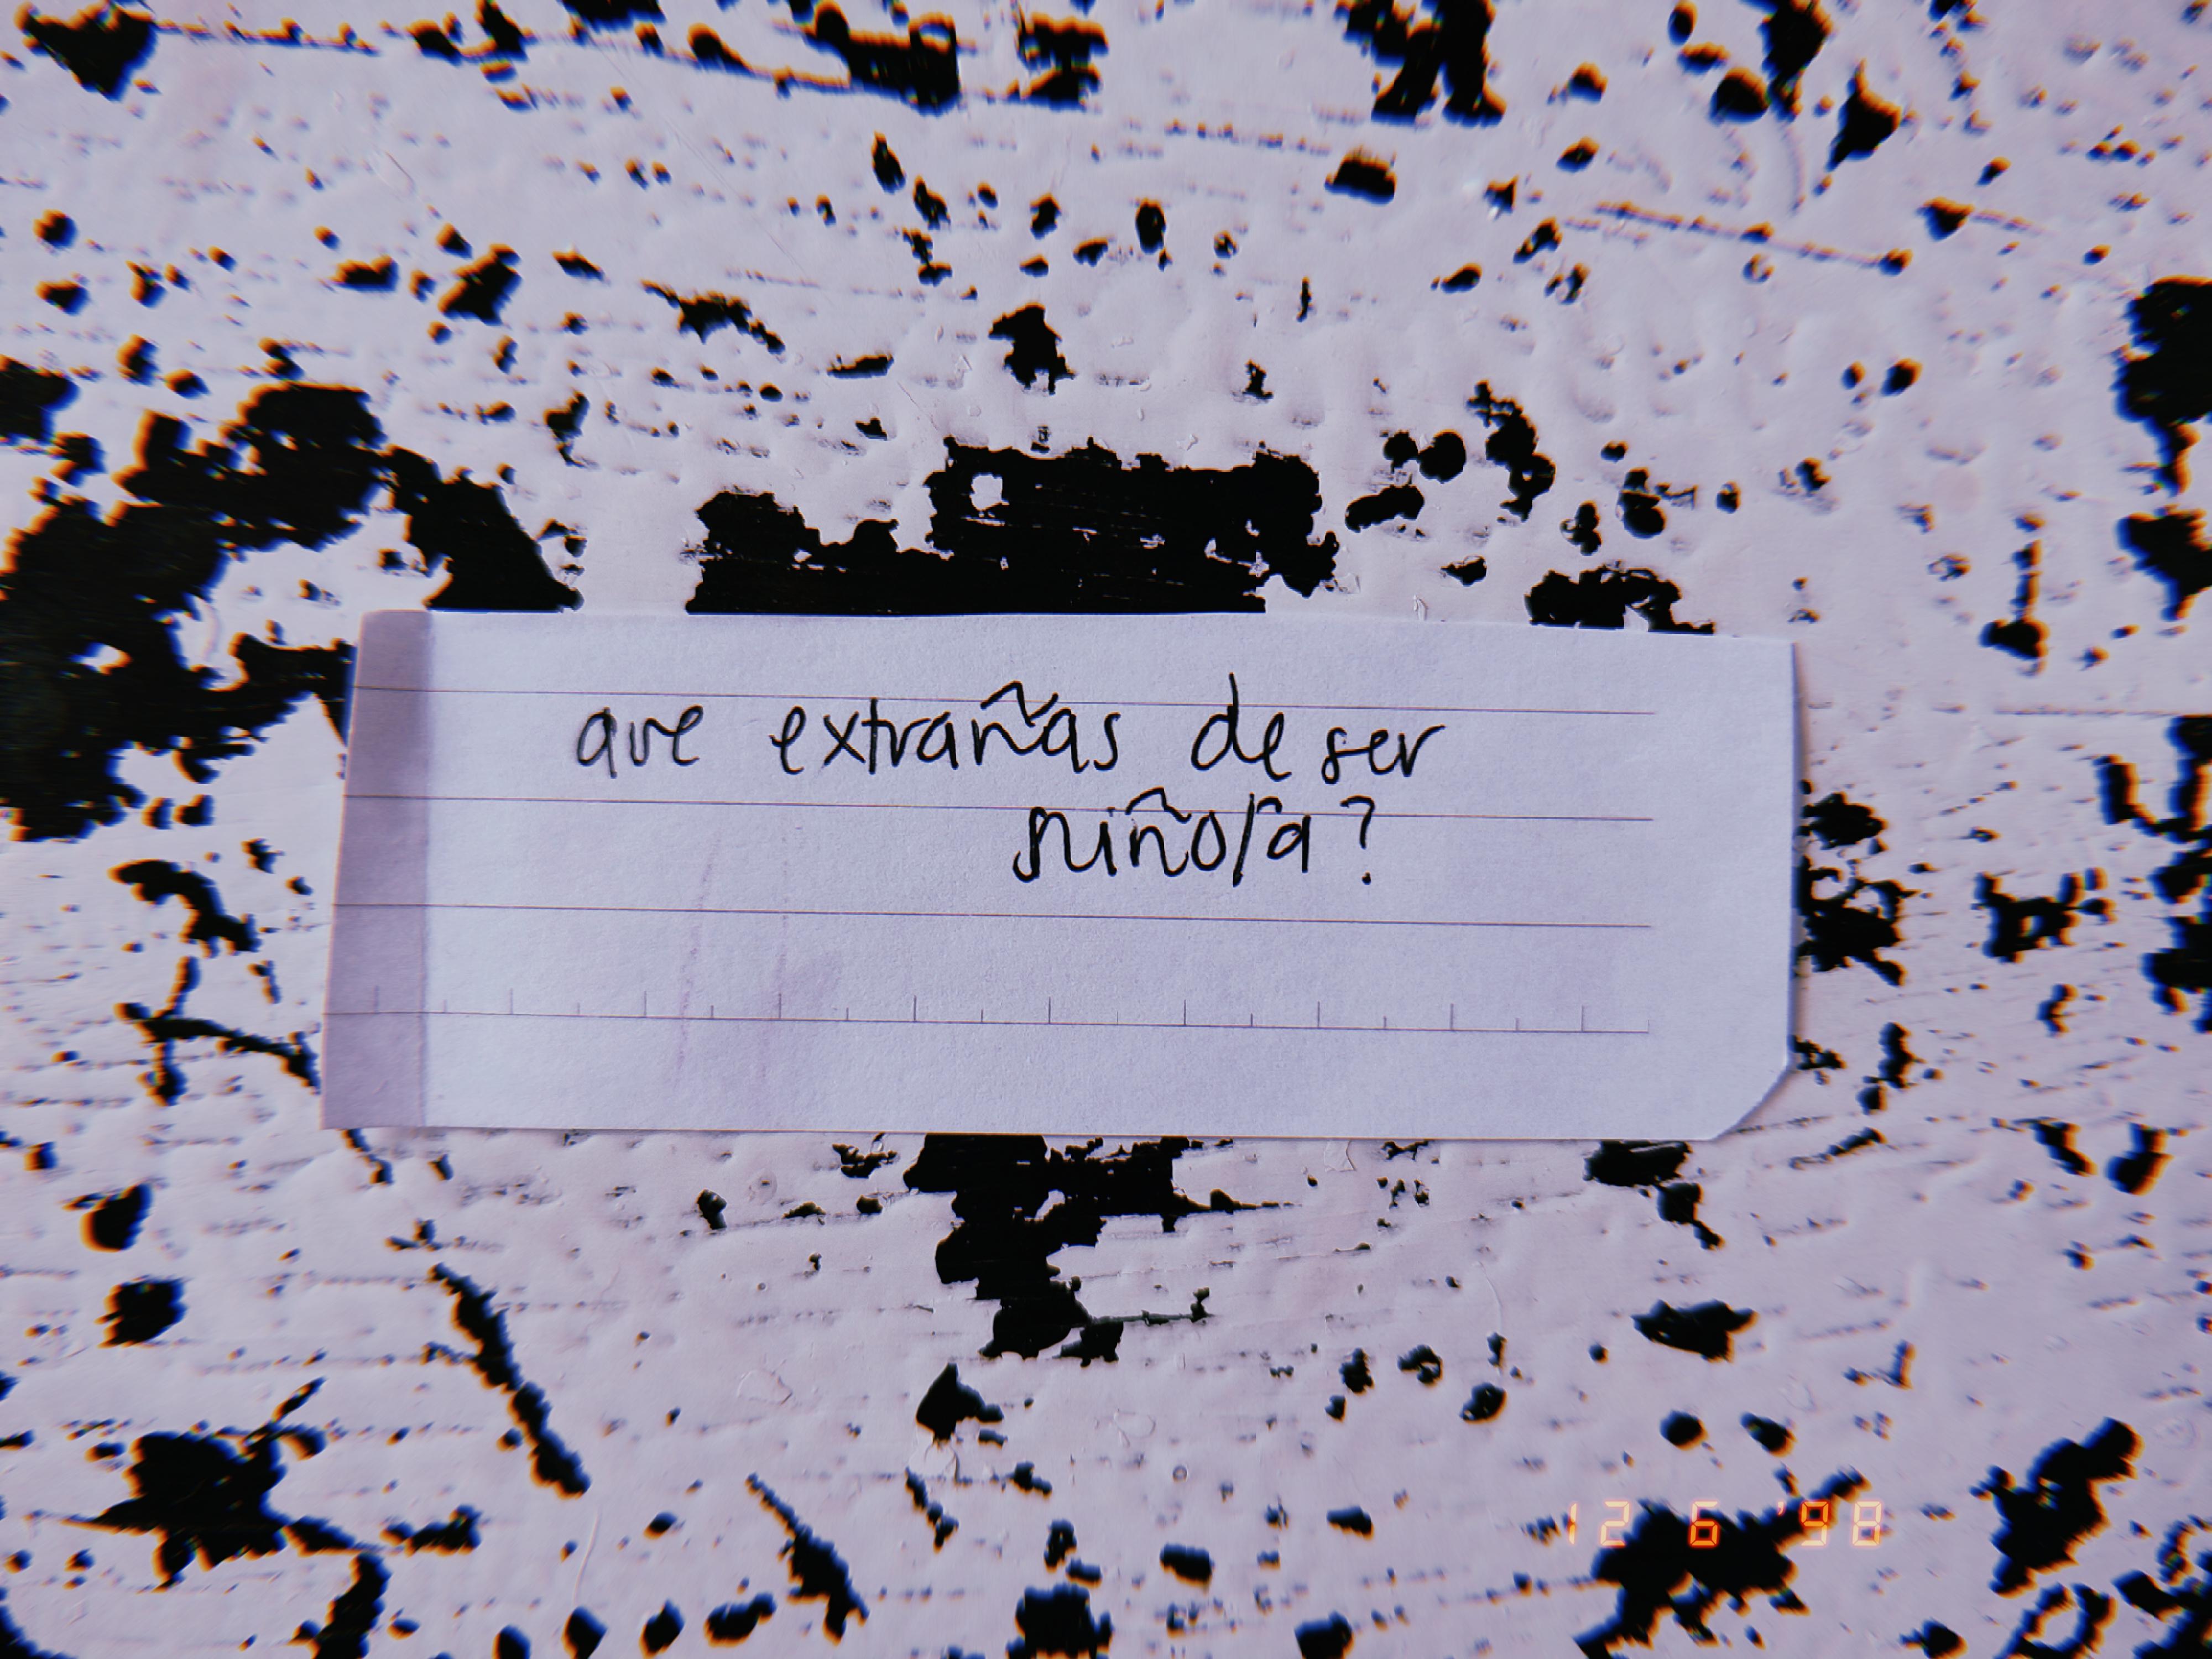 que extrañas de ser
niño/a?
12 6 '98